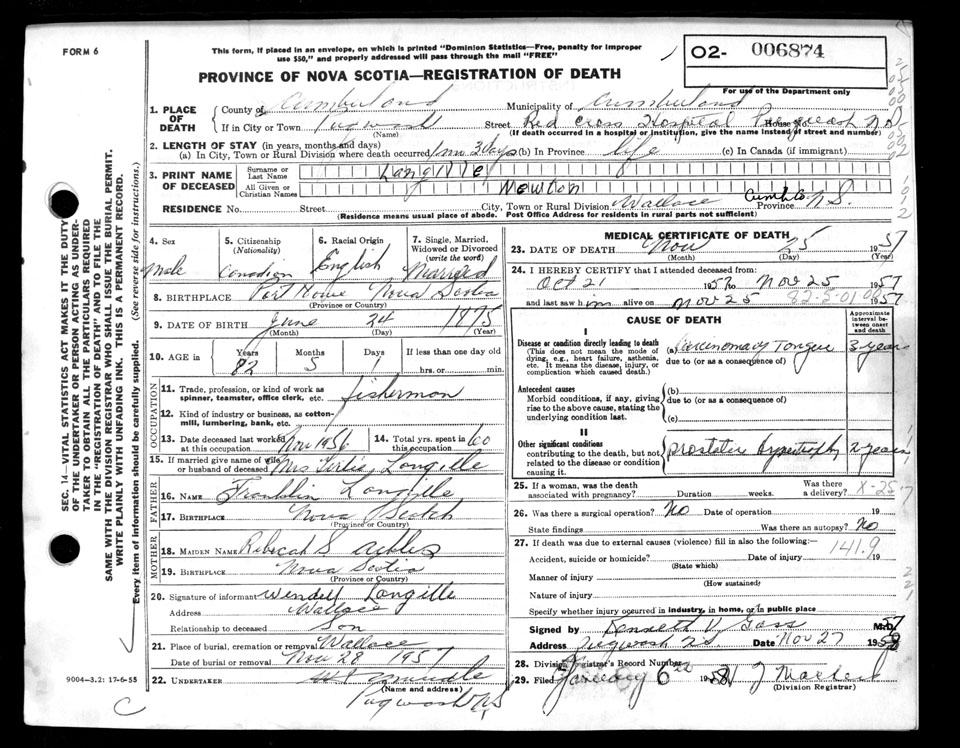 FORM 6
This form, if placed in an envelope, on which is printed "Dominion Statistics—Free, penalty for improper
use $50," and properly addressed will pass through the mail "FREE"
O2- 006874
For use of the Department only
PROVINCE OF NOVA SCOTIA—REGISTRATION OF DEATH
1. PLACE OF DEATH
County of Cumberland Municipality of Cumberland
If in City or Town Pugwash Street Red Cross Hospital House No.
(Name) (If death occurred in a hospital or institution, give the name instead of street and number)
2. LENGTH OF STAY (in years, months and days)
(a) In City, Town or Rural Division where death occurred 1 mn 3 days (b) In Province life (c) In Canada (if immigrant)
3. PRINT NAME OF DECEASED
Surname or Last Name Langille
All Given or Christian Names Newton
RESIDENCE No. Street City, Town or Rural Division Wallace Cumb. Co. Province N.S.
(Residence means usual place of abode. Post Office Address for residents in rural parts not sufficient)
4. Sex Male
5. Citizenship (Nationality) Canadian
6. Racial Origin English
7. Single, Married, Widowed or Divorced (write the word) Married
8. BIRTHPLACE Port Howe Nova Scotia
(Province or Country)
9. DATE OF BIRTH June 24 1875
(Month) (Day) (Year)
10. AGE in Years 82 Months 5 Days 1 If less than one day old hrs. or min.
OCCUPATION
11. Trade, profession, or kind of work as spinner, teamster, office clerk, etc. fisherman
12. Kind of industry or business, as cotton-mill, lumbering, bank, etc.
13. Date deceased last worked at this occupation Nov 1956
14. Total yrs. spent in this occupation 60
15. If married give name of wife or husband of deceased Mrs Langille
FATHER
16. NAME Franklin Langille
17. BIRTHPLACE Nova Scotia
(Province or Country)
MOTHER
18. MAIDEN NAME Rebecah S
19. BIRTHPLACE Nova Scotia
(Province or Country)
20. Signature of informant Wendell Langille
Address Wallace
Relationship to deceased Son
21. Place of burial, cremation or removal Wallace
Date of burial or removal Nov 28 1957
22. UNDERTAKER
(Name and address)
Pugwash NS
MEDICAL CERTIFICATE OF DEATH
23. DATE OF DEATH Nov 25 1957
(Month) (Day) (Year)
24. I HEREBY CERTIFY that I attended deceased from
Oct 21 1957 to Nov 25 1957
and last saw him alive on Nov 25 1957
CAUSE OF DEATH
Approximate interval between onset and death
I
Disease or condition directly leading to death
(This does not mean the mode of dying, e.g., heart failure, asthenia, etc. It means the disease, injury, or complication which caused death.)
(a) Carcinoma of Tongue 3 years
due to (or as a consequence of)
Antecedent causes
Morbid conditions, if any, giving rise to the above cause, stating the underlying condition last.
(b)
due to (or as a consequence of)
(c)
II
Other significant conditions
contributing to the death, but not related to the disease or condition causing it.
prostatic hypertrophy 2 years
25. If a woman, was the death associated with pregnancy? Duration weeks. Was there a delivery? X-25-7
26. Was there a surgical operation? No Date of operation 19
State findings Was there an autopsy? No
27. If death was due to external causes (violence) fill in also the following:—
Accident, suicide or homicide? Date of injury 19
141.9
(State which)
Manner of injury
(How sustained)
Nature of injury
Specify whether injury occurred in industry, in home, or in public place
Signed by Kenneth V Gass M.D.
Address Pugwash N.S. Date Nov 27 1957
28. Division Registrar's Record Number
29. Filed January 6 1958
(Division Registrar)
SEC. 14—VITAL STATISTICS ACT MAKES IT THE DUTY
OF THE UNDERTAKER OR PERSON ACTING AS UNDER-
TAKER TO OBTAIN ALL THE PARTICULARS REQUIRED
IN THE "REGISTRATION OF DEATH" AND TO FILE THE
SAME WITH THE DIVISION REGISTRAR WHO SHALL ISSUE THE BURIAL PERMIT.
WRITE PLAINLY WITH UNFADING INK. THIS IS A PERMANENT RECORD.
Every item of information should be carefully supplied. (See reverse side for instructions.)
9004—3.2: 17-6-55
C